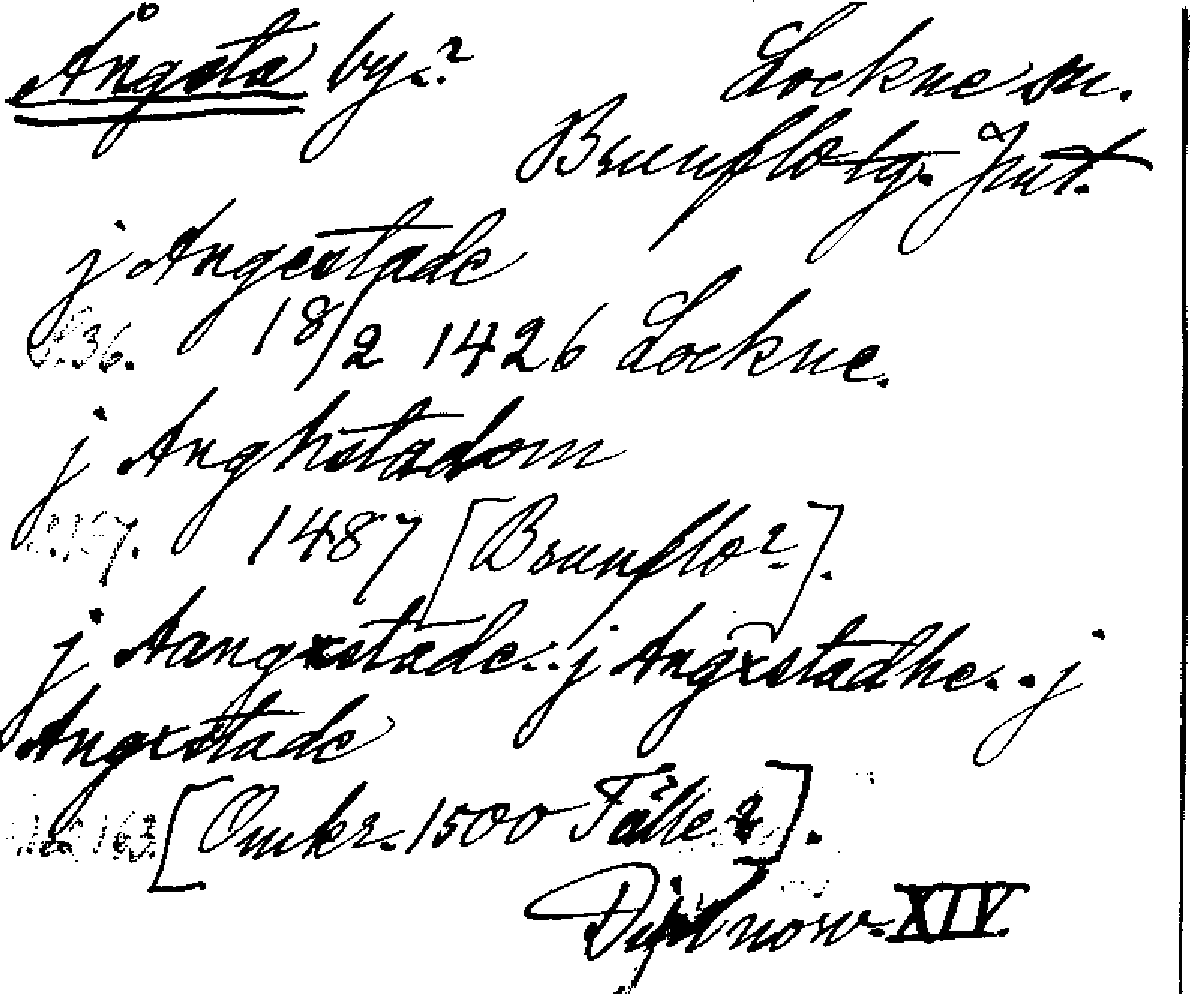 Ångsta by.? Lockne sn.
Brunflo tg. Jmt.
j Angestade
s. 36. 18/2 1426 Lockne.
j Anghstadom
1487 [Brunflo?].
j Aangxstade.. j Angxstadhe.. j
Angxstade
[Omkr. 1500 Fålle?].
Dipl norv. XIV.